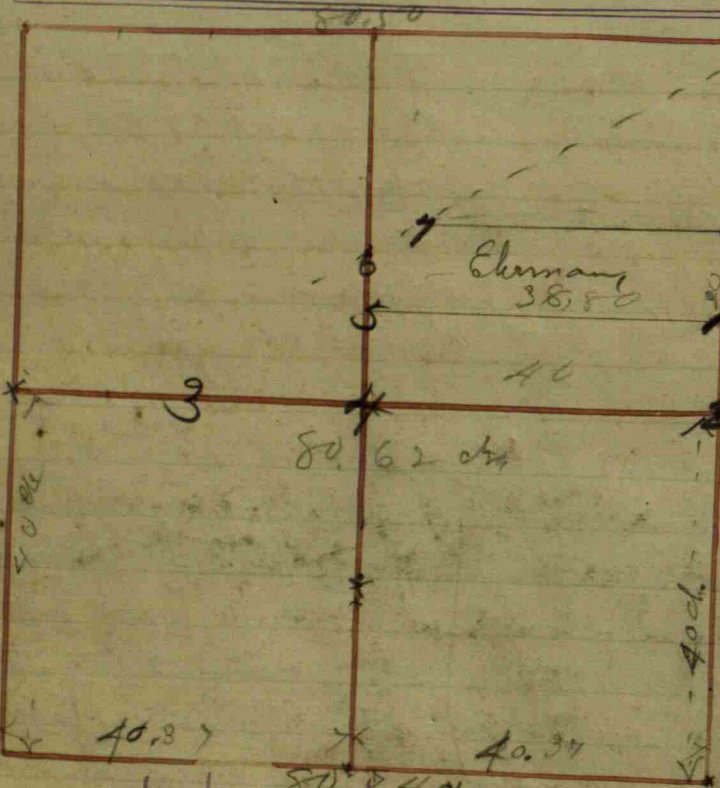 80.50
7
6
Eherman
38,80
5
1
40
3
4
2
80.62 ch
40 ch
40 ch.
40.37
40.37